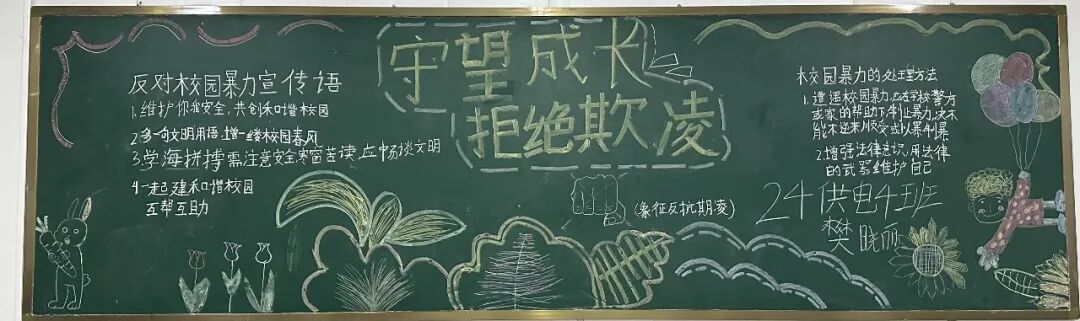 守望成长
拒绝欺凌
反对校园暴力宣传语
1.维护你我安全,共创和谐校园
2多一句文明用语,增一缕校园春风
3.学海拼搏需注意安全,寒窗苦读应畅谈文明
4一起建和谐校园
互帮互助
(象征反抗期凌)
校园暴力的处理方法
1.遭遇校园暴力,应在学校警方
或家的帮助下,制止暴力,决不
能不逆来顺受或以暴制暴
2.增强法律意识,用法律
的武器维护自己
24供电4班
樊晓丽